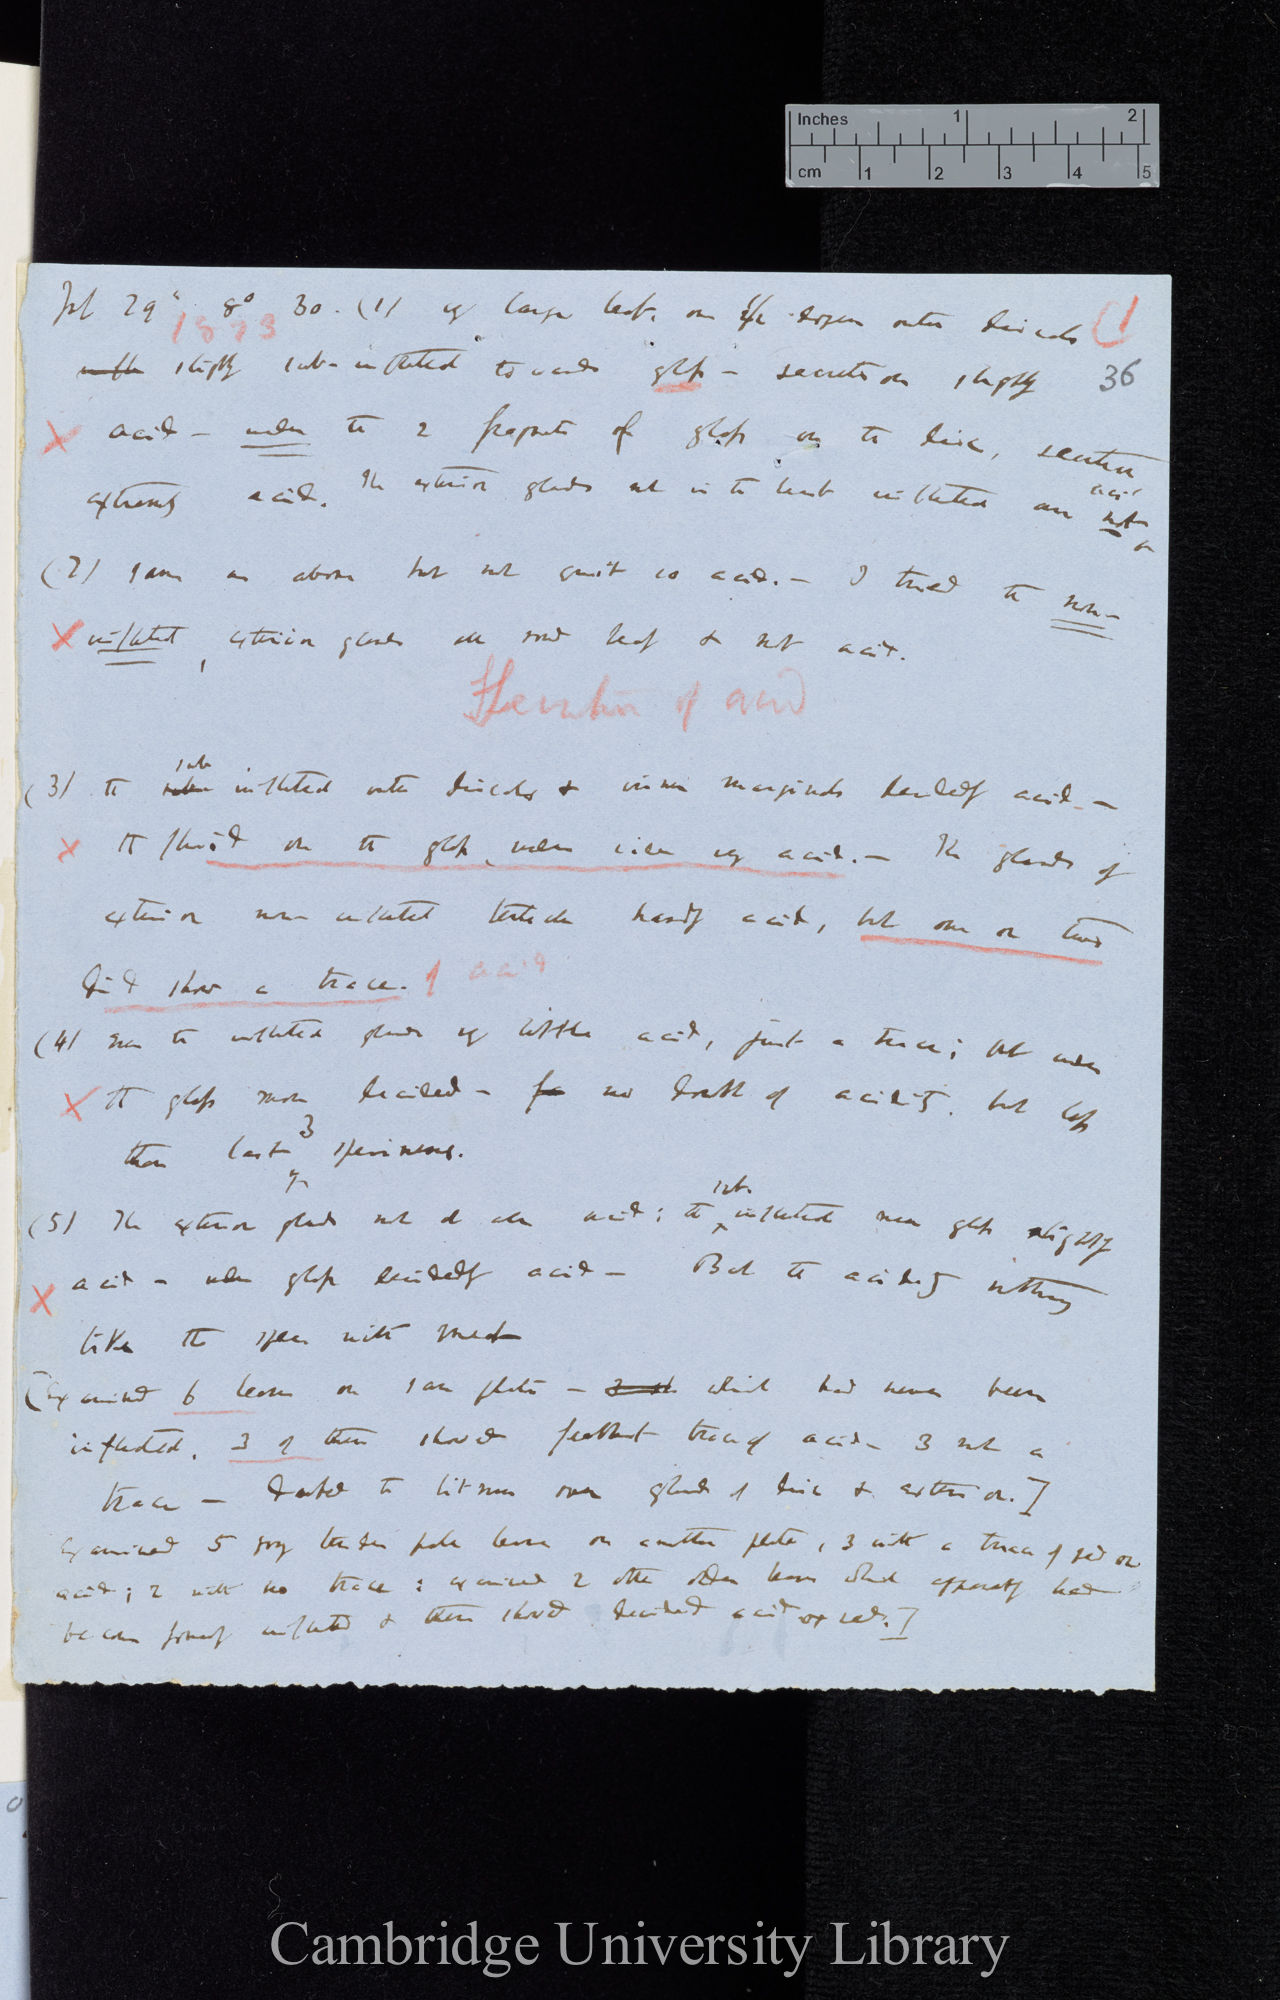 Inches 1 2
cm 1 2 3 4 5
29 8° 30. (1) large leaf, one dozen outer discals (1
1873
slightly sub-inflected towards glass — secretion slightly 36
X acid — under the 2 fragments of glass on the disc, secretion
extremely acid. The exterior glands not in the least inflected are not acid
(2) same as above but not quite so acid. — I tried the non-
X inflected, exterior glands all round leaf & not acid.
Secretion of acid
(3) the sub inflected outer discals & inner marginals decidedly acid —
X the fluid on the glass, when very acid. — The glands of
exterior non inflected tentacles hardly acid, but one or two
did show a trace. of acid
(4) the inflected glands very little acid, just a trace; but under
X the glass more decided — no doubt of acidity. but less
than last 3 specimens.
(5) The exterior glands not at all acid; the sub inflected near glass slightly
X acid — under glass decidedly acid — But the acidity nothing
like the spec with meat
[Examined 6 leaves on same plate — which had never been
inflected, 3 of them showed feeblest trace of acid — 3 not a
trace — the litmus over glands of disc & exterior.]
Examined 5 leaves on another plate, 3 with a trace of red or
acid; 2 with no trace: examined 2 other older leaves which apparently had
been formerly inflected & these showed decided acid or red.]
Cambridge University Library